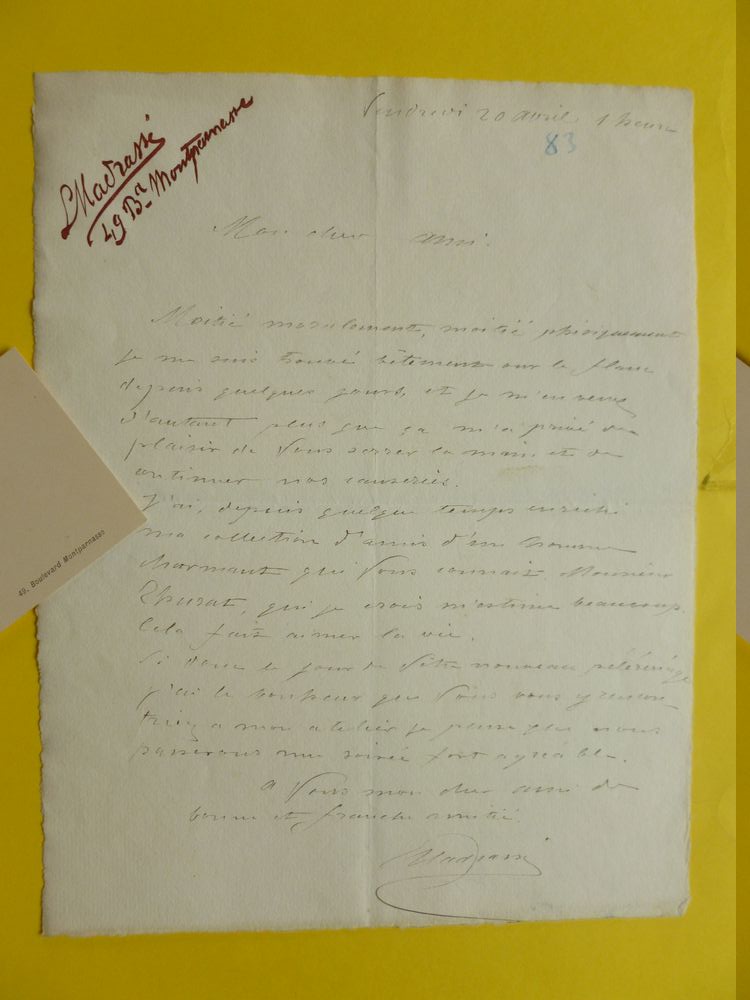 LMadrassi
49 Bd Montparnasse
Vendredi 20 avril 1 heure
83
Mon cher ami.
Moitié moralement, moitié phisiquement
je me suis trouvé bêtement sur le flanc
depuis quelques jours, et je m'en veux
d'autant plus que ça m'a privé du
plaisir de Vous serrer la main et de
continuer nos causeries.
J'ai, depuis quelque temps enrichi
ma collection d'amis d'un homme
charmant qui Vous connait Monsieur
qui je crois m'estime beaucoup.
Cela fait aimer la vie.
Si donc le jour de Votre nouveau pélérinage
j'ai le bonheur que Vous vous y rencon
triez a mon atelier je pense que nous
passerons une soirée fort agréable.
a Vous mon cher ami de
bonne et franche amitié.
Madrassi
49, Boulevard Montparnasse